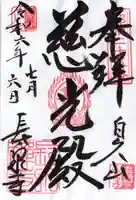 奉拝
慈光殿
令和六年
七月
六日
長泉寺